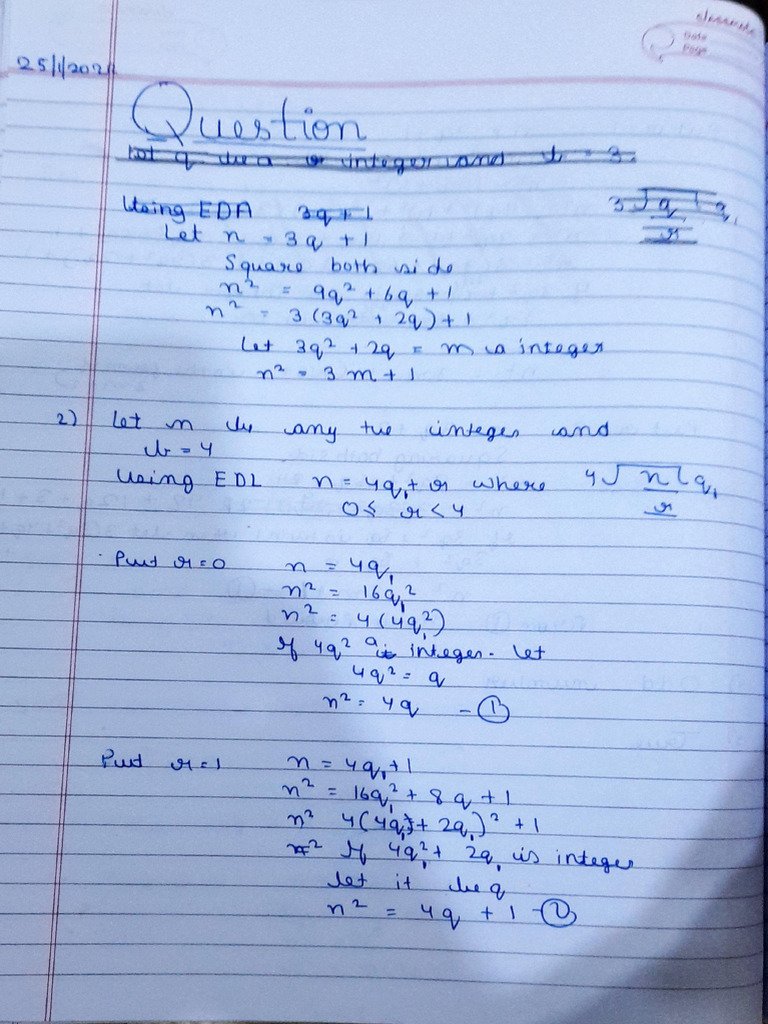 classmate
Date
Page
25/1/202
Question
Let q be a integer and b = 3.
Using EDA 3q + 1
3 q q1
r
Let n = 3q + 1
Square both side
n² = 9q² + 6q + 1
n² = 3(3q² + 2q) + 1
Let 3q² + 2q = m a integer
n² = 3m + 1
2) Let n be any +ve integer and
b = 4
Using EDL n = 4q₁ + r where 4 n q₁
0 ≤ r < 4 r
Put r = 0 n = 4q₁
n² = 16q₁²
n² = 4(4q₁²)
If 4q₁² a integer. Let
4q₁² = q
n² = 4q - ①
Put r = 1 n = 4q₁ + 1
n² = 16q₁² + 8q + 1
n² 4(4q₁² + 2q₁)² + 1
n² If 4q₁² + 2q₁ is integer
let it be q
n² = 4q + 1 - ②